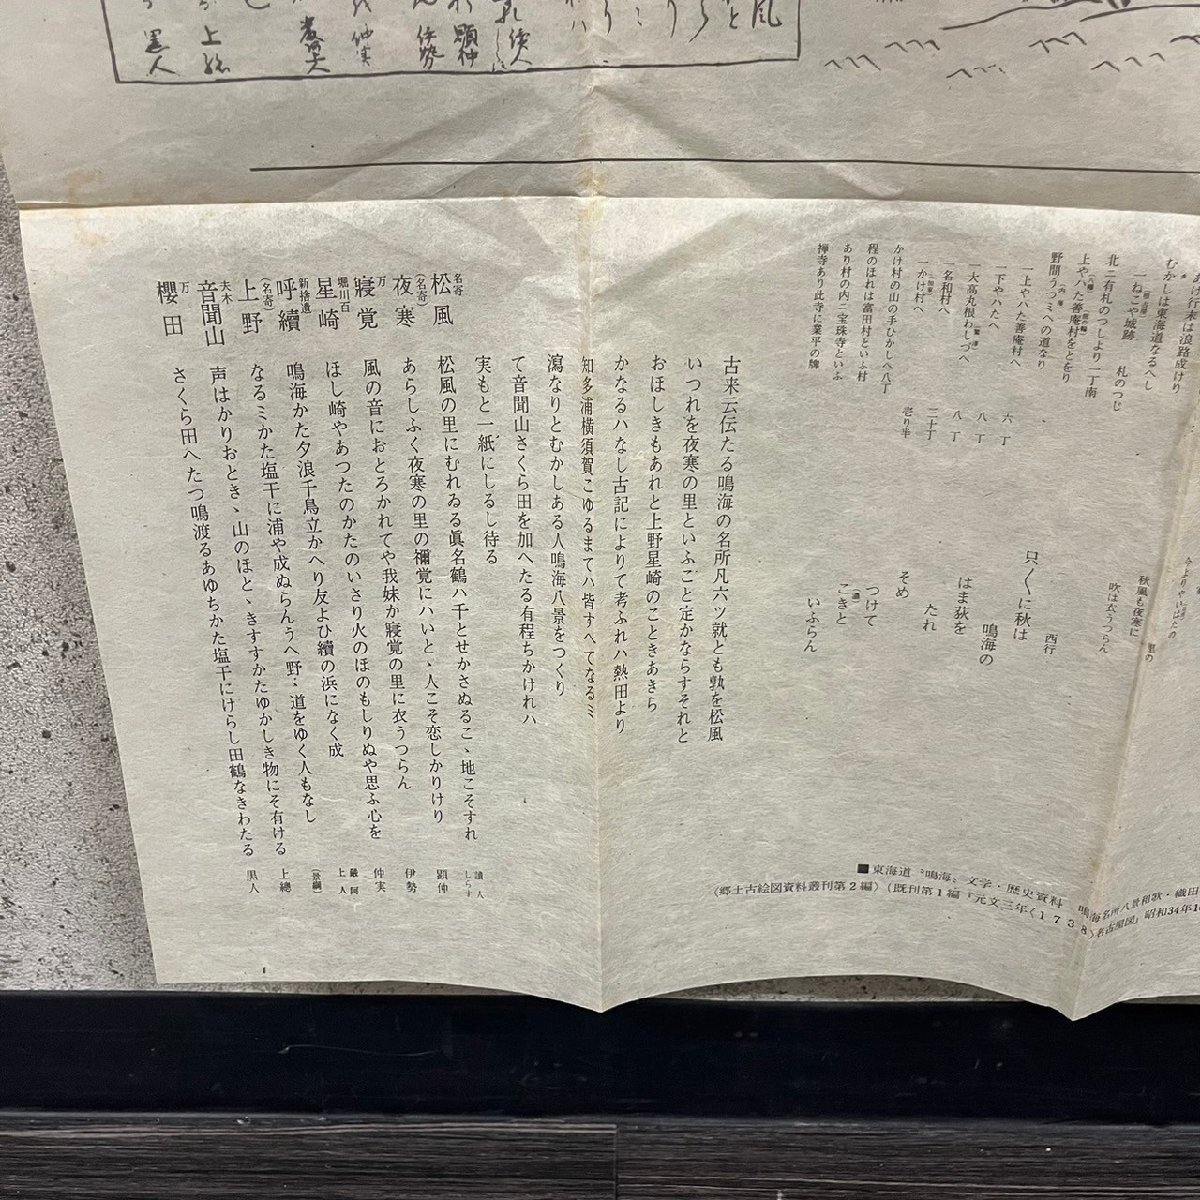 あけ行末は浪路成けり
むかしは東海道なるへし
一ねこや城跡　札のつじ
北ニ有札のつしより一丁南
上やハた善庵村をとをり
野間うつミへの道なり
一上やハた善庵村へ　六丁
一下やハたへ　八丁
一大高丸根わしづへ　八丁
一名和村へ　二十丁
一かけ村へ　壱り半
かけ村の山の手むかしへ八丁
程のほれは富田村といふ村
あり村の内ニ宝珠寺といふ
禅寺あり此寺に業平の牌
秋風も夜寒に
里の
吹は衣うつらん
西行
只くくに秋は
鳴海の
はま荻を
たれ
そめ
つけて
こきと
いふらん
古来云伝たる鳴海の名所凡六ツ就とも孰を松風
いつれを夜寒の里といふこと定かならすそれと
おほしきもあれと上野星崎のこときあきら
かなるハなし古記によりて考ふれハ熱田より
知多浦横須賀こゆるまてハ皆すへてなるミ
瀉なりとむかしある人鳴海八景をつくり
て音聞山さくら田を加へたる有程ちかけれハ
実もと一紙にしるし待る
名寄
松風　松風の里にむれゐる眞名鶴ハ千とせかさぬるこゝ地こそすれ　讀人しらす
（名寄）
夜寒　あらしふく夜寒の里の禰覚にハいとゝ人こそ恋しかりけり　顕仲
万
寢覚　風の音におとろかれてや我妹か寢覚の里に衣うつらん　伊勢
堀川百
星崎　ほし崎やあつたのかたのいさり火のほのもしりぬや思ふ心を　仲実
新捨遺
呼續　鳴海かた夕浪千鳥立かへり友よひ續の浜になく成　厳阿上人
（名寄）
上野　なるミかた塩干に浦や成ぬらんうへ野ミ道をゆく人もなし　（景綱）
夫木
音聞山　声はかりおときゝ山のほとゝきすすかたゆかしき物にそ有ける　上總
万
櫻田　さくら田へたつ鳴渡るあゆちかた塩干にけらし田鶴なきわたる　黒人
■東海道〝鳴海〟文学・歴史資料　鳴海名所八景和歌・織田
（郷土古絵図資料叢刊第２編）（既刊第１編「元文三年〈１７３８〉名古屋図」昭和34年10